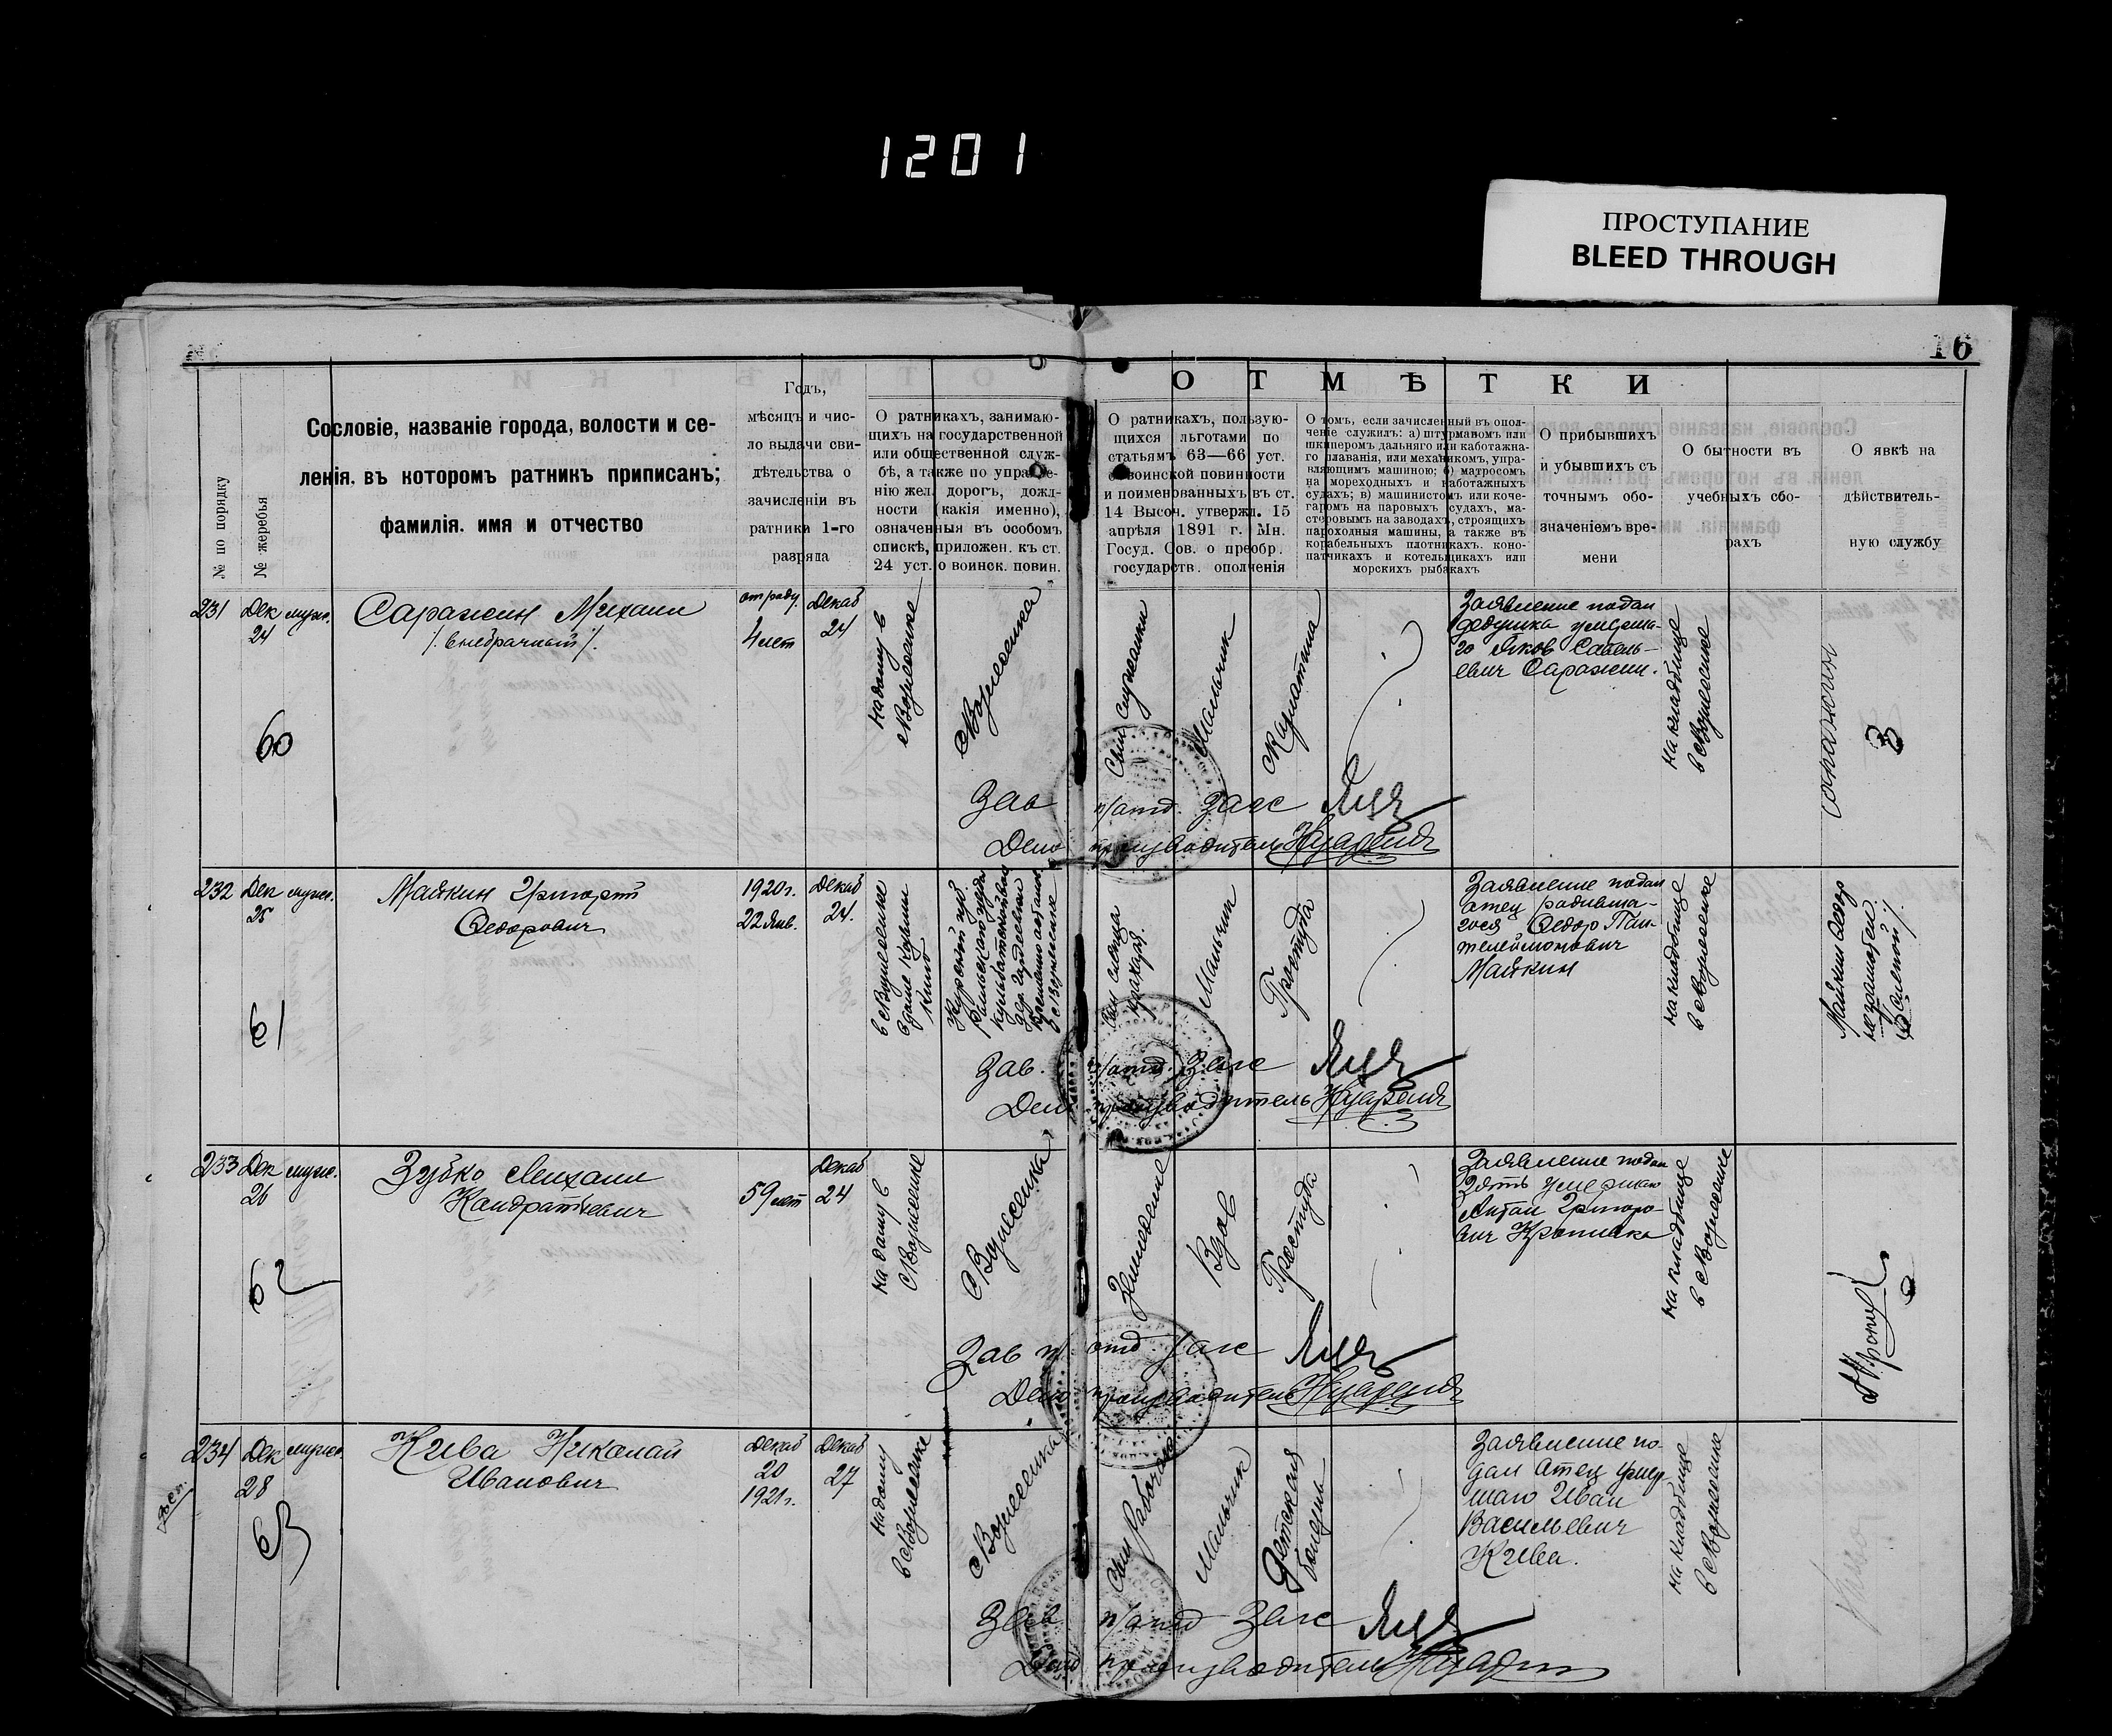 1201
ПРОСТУПАНИЕ
BLEED THROUGH
16
О Т М Ѣ Т К И
№ по порядку
№ жеребья
Сословіе, названіе города, волости и се-
ленія. въ которомъ ратникъ приписанъ;
фамилія. имя и отчество
Годъ,
мѣсяцъ и чис-
ло выдачи сви-
дѣтельства о
зачисленіи въ
ратники 1-го
разряда
О ратникахъ, занимаю-
щихъ на государственной
или общественной служ-
бѣ, а также по управле-
нію жел. дорогъ, долж-
ности (какія именно),
означенныя въ особомъ
спискѣ, приложен. къ ст.
24 уст. о воинск. повин.
О ратникахъ, пользую-
щихся льготами по
статьямъ 63—66 уст.
о воинской повинности
и поименованныхъ въ ст.
14 Высоч. утвержд. 15
апрѣля 1891 г. Мн.
Госуд. Сов. о преобр.
государств. ополченія
О томъ, если зачисленный въ опол-
ченіе служилъ: а) штурмавомъ или
шкиперомъ дальняго или каботажна-
го плаванія, или механикомъ, упра-
вляющимъ машиною; б) матросомъ
на мореходныхъ и каботажныхъ
судахъ; в) машинистомъ или коче-
гаромъ на паровыхъ судахъ, ма-
стеровымъ на заводахъ, строящихъ
пароходныя машины, а также въ
корабельныхъ плотникахъ. коно-
патчикахъ и котельщикахъ или
морскихъ рыбакахъ
О прибывшихъ
и убывшихъ съ
точнымъ обо-
значеніемъ вре-
мени
О бытности въ
учебныхъ сбо-
рахъ
О явкѣ на
дѣйствитель-
ную службу
231 Дек 24 муж.
60
Саражин Михаил
/. внебрачный /.
от роду. 4 лет
Декаб 24
на дому в
с Вознесенке
с Вознесенка
Сын служанки
Мальчик
Скарлатина
Заявление подал
дедушка умерша-
го Яков Савель-
евич Саражин.
на кладбище
в с Вознесенке
Саражин
Зав п/отд. Загс
Дело производитель
232 Дек 25 муж.
61
Майкин Григорий
Федорович
1920 г.
22 Янв.
Декаб 24.
в с Вознесенке
Мальчик
Простуда
Заявление подал
отец родивша-
гося Федор Пан-
телеймонович
Майкин
на кладбище
в с Вознесенке
Майкин Федор
неграмотный
Зав. п/отд. Загс
Дело производитель
233 Дек 26 муж.
62
Зубко Михаил
Кандратьевич
59 лет
Декаб 24
на дому в
с Вознесенке
с Вознесенка
Земледелие
Вдов
Простуда
Заявление подал
зять умершаго
Антон Григоро-
вич
на кладбище
в с Вознесенке
Зав п/отд Загс
Дело производитель
234 Дек 28 муж.
63
Кива Николай
Иванович
Декаб
20
1921 г.
Декаб 27
на дому
в с Вознесенке
с Вознесенка
Сын рабочаго
Мальчик
Детская
болезнь
Заявление по-
дал отец умер
шаго Иван
Васильевич
Кива.
на кладбище
в с Вознесенке
Зав п/отд Загс
Дело производитель